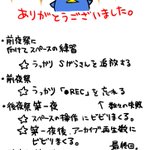 ありがとうございました。
・前夜祭に
向けてスペースの練習
☆うっかりSがらさんを追放する
・前夜祭
☆うっかり「●REC」を忘れる
・後夜祭 第一夜
☆スペースの操作にビビりまくる。
☆第一夜後、アーカイブ再生数に
ビビりまくる。
最終回。